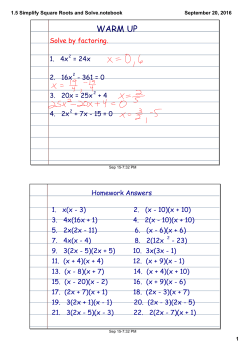 1.5 Simplify Square Roots and Solve.notebook
September 20, 2016
WARM UP
Solve by factoring.
1. 4x² = 24x x = 0, 6
2. 16x² - 361 = 0
x = 19/4, -19/4
3. 20x = 25x² + 4 x = 2/5
25x² - 20x + 4 = 0
4. 2x² + 7x - 15 = 0 x = 3/2, -5
Sep 15-7:32 PM
Homework Answers
1. x(x - 3) 2. (x - 10)(x + 10)
3. 4x(16x + 1) 4. 2(x - 10)(x + 10)
5. 2x(2x - 11) 6. (x - 6)(x + 6)
7. 4x(x - 4) 8. 2(12x² - 23)
9. 3(2x - 5)(2x + 5) 10. 3x(3x - 1)
11. (x + 4)(x + 4) 12. (x + 9)(x - 1)
13. (x - 8)(x + 7) 14. (x + 4)(x + 10)
15. (x - 20)(x - 2) 16. (x + 9)(x - 6)
17. (2x + 7)(x + 1) 18. (2x - 3)(x + 7)
19. 3(2x + 1)(x - 1) 20. (2x - 3)(2x - 5)
21. 3(2x - 5)(x - 3) 22. 2(2x - 7)(x + 1)
Sep 15-7:32 PM
1